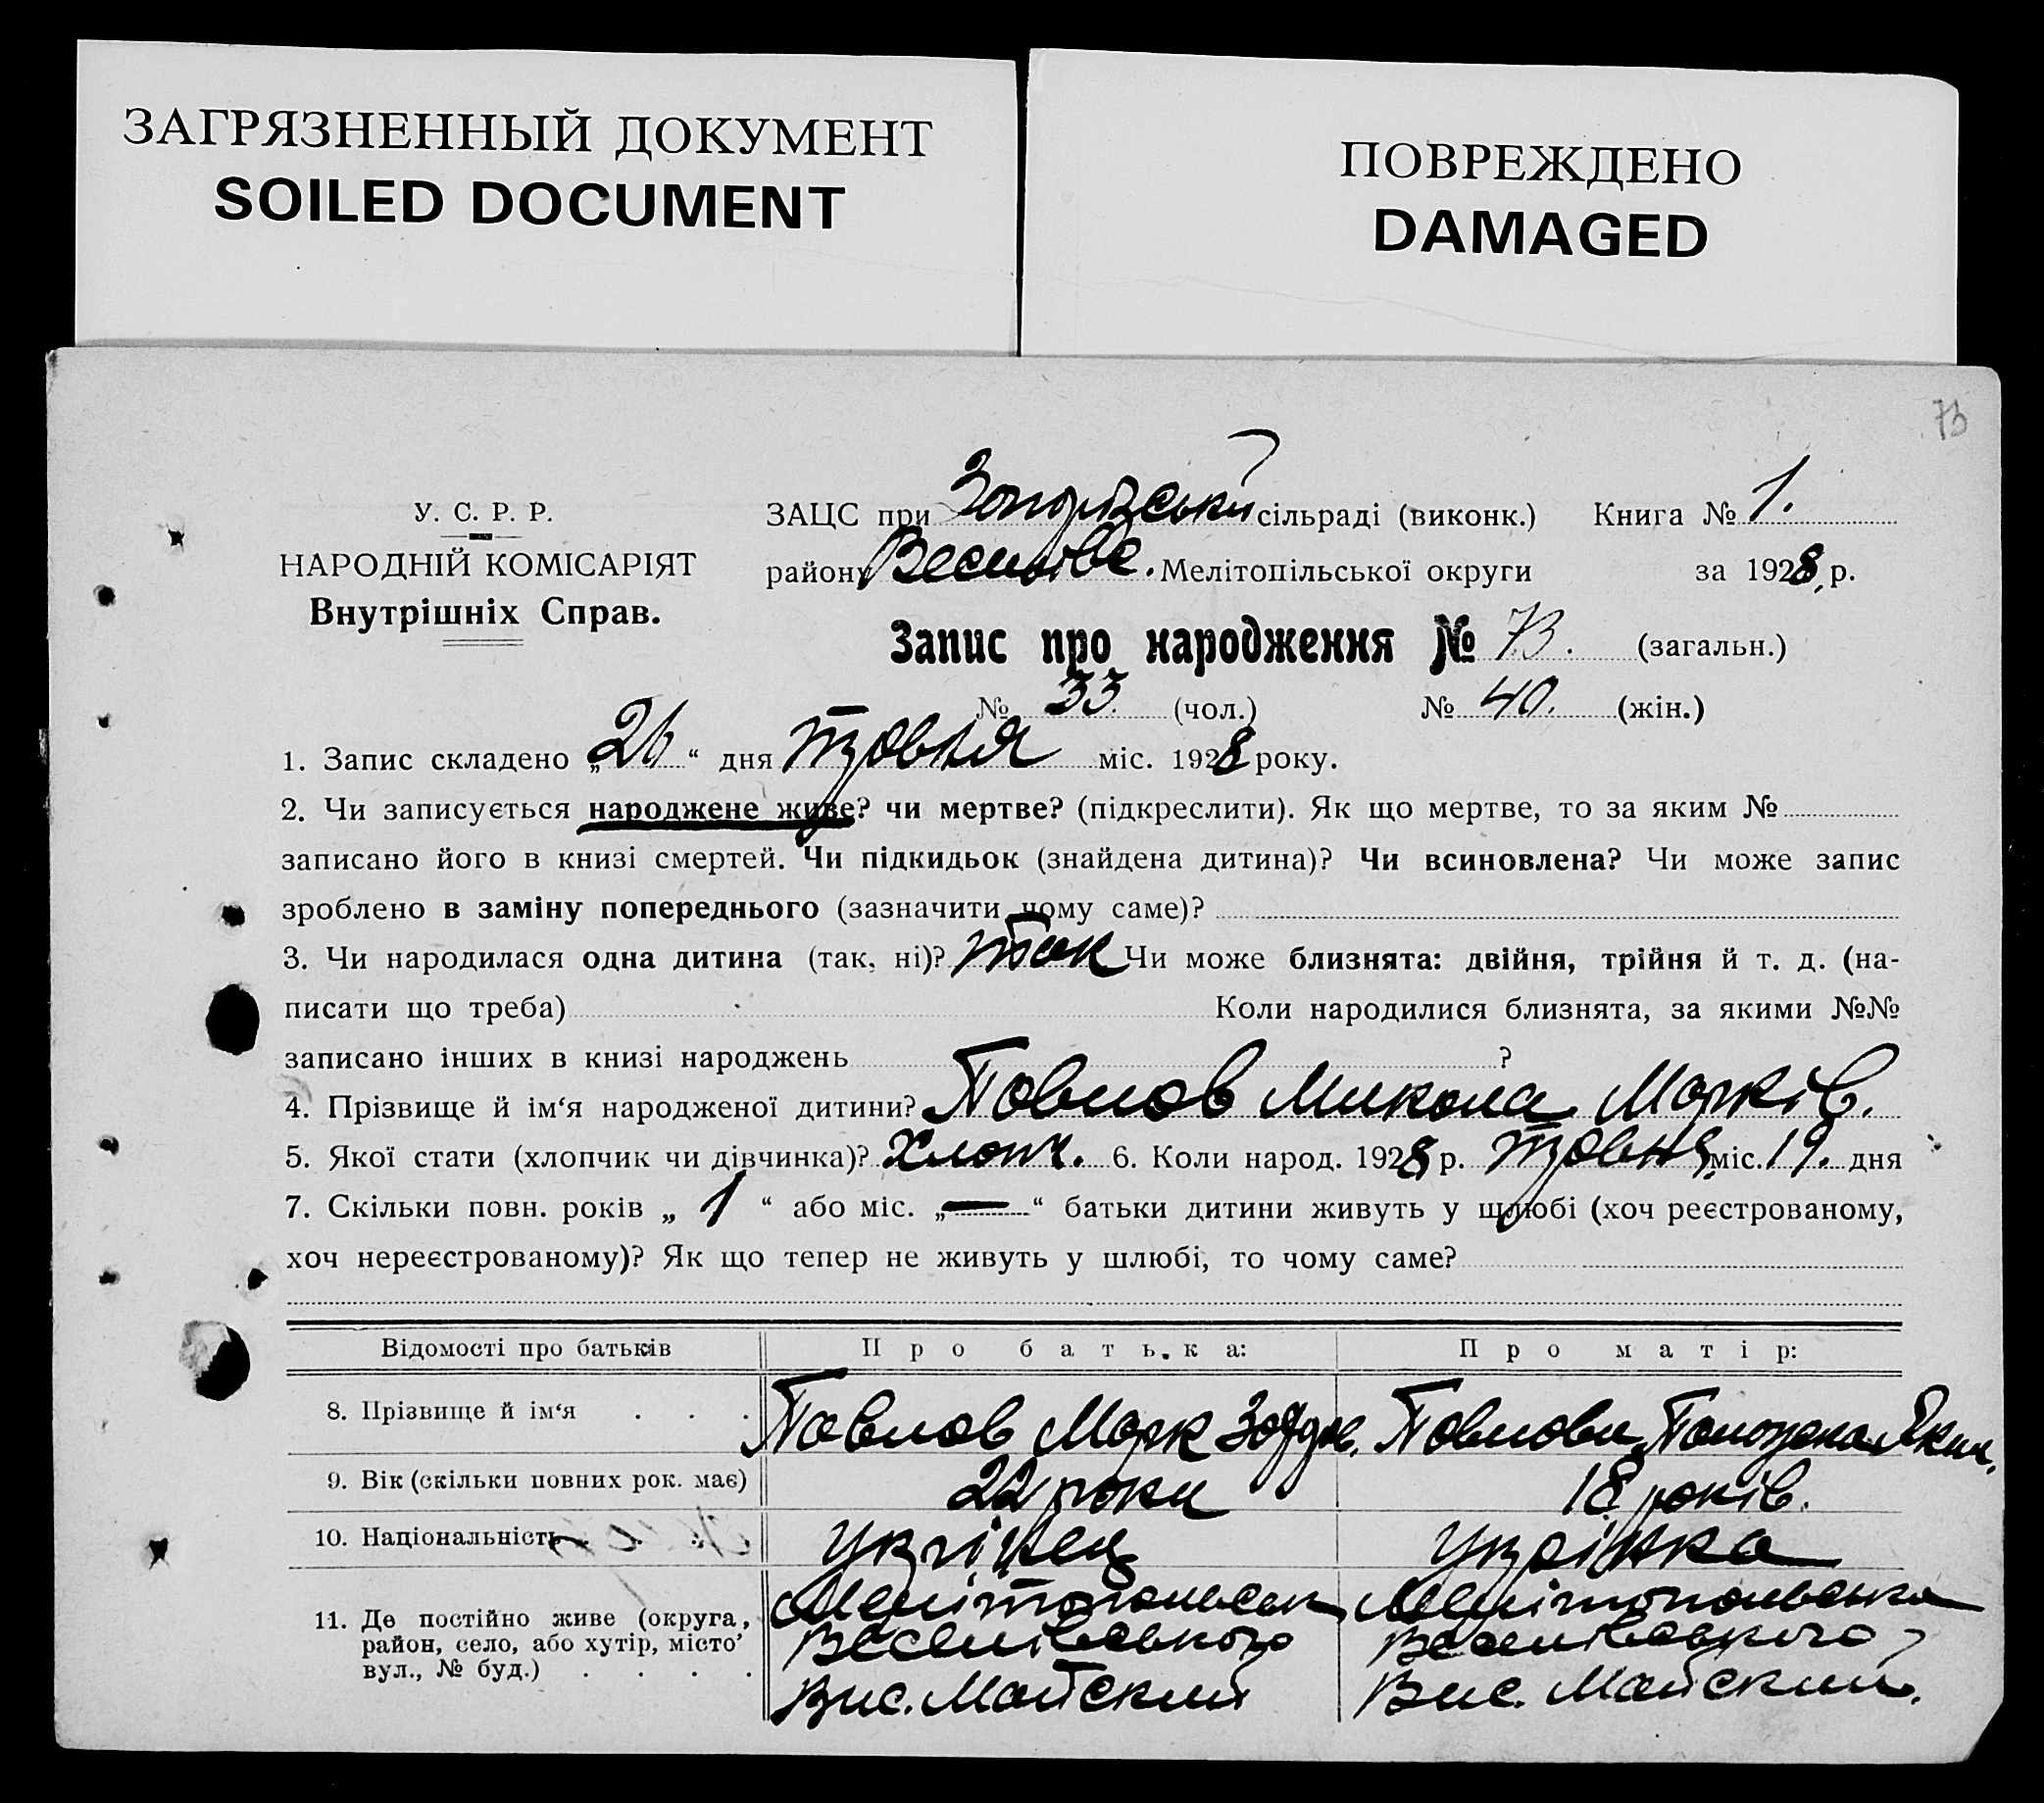 ЗАГРЯЗНЕННЫЙ ДОКУМЕНТ
SOILED DOCUMENT
ПОВРЕЖДЕНО
DAMAGED
73
У. С. Р. Р.
НАРОДНІЙ КОМІСАРІЯТ
Внутрішніх Справ.
ЗАЦС при сільраді (виконк.) Книга № 1.
району Мелітопільської округи за 1928 р.
Запис про народження № 73. (загальн.)
№ 33 (чол.) № 40. (жін.)
1. Запис складено „26“ дня травня міс. 1928 року.
2. Чи записується народжене живе? чи мертве? (підкреслити). Як що мертве, то за яким №
записано його в книзі смертей. Чи підкидьок (знайдена дитина)? Чи всиновлена? Чи може запис
зроблено в заміну попереднього (зазначити чому саме)?
3. Чи народилася одна дитина (так, ні)? так Чи може близнята: двійня, трійня й т. д. (на-
писати що треба) Коли народилися близнята, за якими №№
записано інших в книзі народжень ?
4. Прізвище й ім‘я народженої дитини? Павлов Микола Марків.
5. Якої стати (хлопчик чи дівчинка)? Хлопч. 6. Коли народ. 1928 р. травня міс. 19. дня
7. Скільки повн. років „ 1 “ або міс. „—“ батьки дитини живуть у шлюбі (хоч реєстрованому,
хоч нереєстрованому)? Як що тепер не живуть у шлюбі, то чому саме?
Відомості про батьків Про батька: Про матір:
8. Прізвище й ім‘я . . . Павлов Марк Павлова
9. Вік (скільки повних рок. має) 22 роки 18 років.
10. Національність . . . Укрінец Укрінка
11. Де постійно живе (округа, район, село, або хутір, місто, вул., № буд.) . . . .
Мелітопольськ Мелітопольська
Веселівського Веселівського
Вис. Майский Вис. Майский.